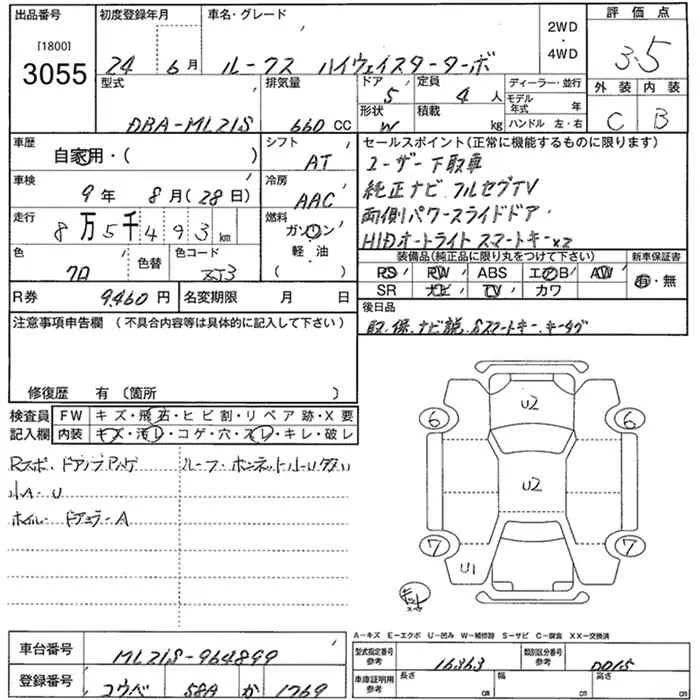 出品番号 初度登録年月 車名・グレード 2WD・4WD 評価点
[1800]
3055 24年 6月 ルークス ハイウェイスターターボ 3.5
型式 排気量 ドア 5 定員 4人 ディーラー・並行 外装 内装
モデル年式 年
DBA-ML21S 660 CC 形状 W 積載 kg ハンドル 左・右 C B
車歴 自家用・( ) シフト AT セールスポイント(正常に機能するものに限ります)
ユーザー下取車
車検 9年 8月(28日) 冷房 AAC 純正ナビ フルセグTV
走行 8万5千493km 燃料 ガソリン 両側パワースライドドア
軽・油 HIDオートライト スマートキーx2
色 色替 色コード ( ) 装備品(純正品に限り丸をつけて下さい) 新車保証書
PS PW ABS エアB AW 有・無
SR ナビ TV カワ
R券 9460円 名変期限 月 日 後日品
取.保.ナビ説.Sスマートキー.キータグ
注意事項申告欄 (不具合内容等は具体的に記入して下さい)
修復歴 有 (箇所 )
検査員 FW キズ・飛石・ヒビ割・リペア跡・X要
記入欄 内装 キズ・汚レ・コゲ・穴・スレ・キレ・破レ
小A・U
U2
6 6
U2
7 7
U1
A−キズ E−エクボ U−凹み W−補修跡 S−サビ C−腐食 XX−交換済
車台番号 ML21S-964899 型式指定番号 参考 16363 類別区分番号 参考 0015
登録番号 コウベ 58A か 1769 車庫証明用 参考 長さ cm 幅 cm 高さ cm